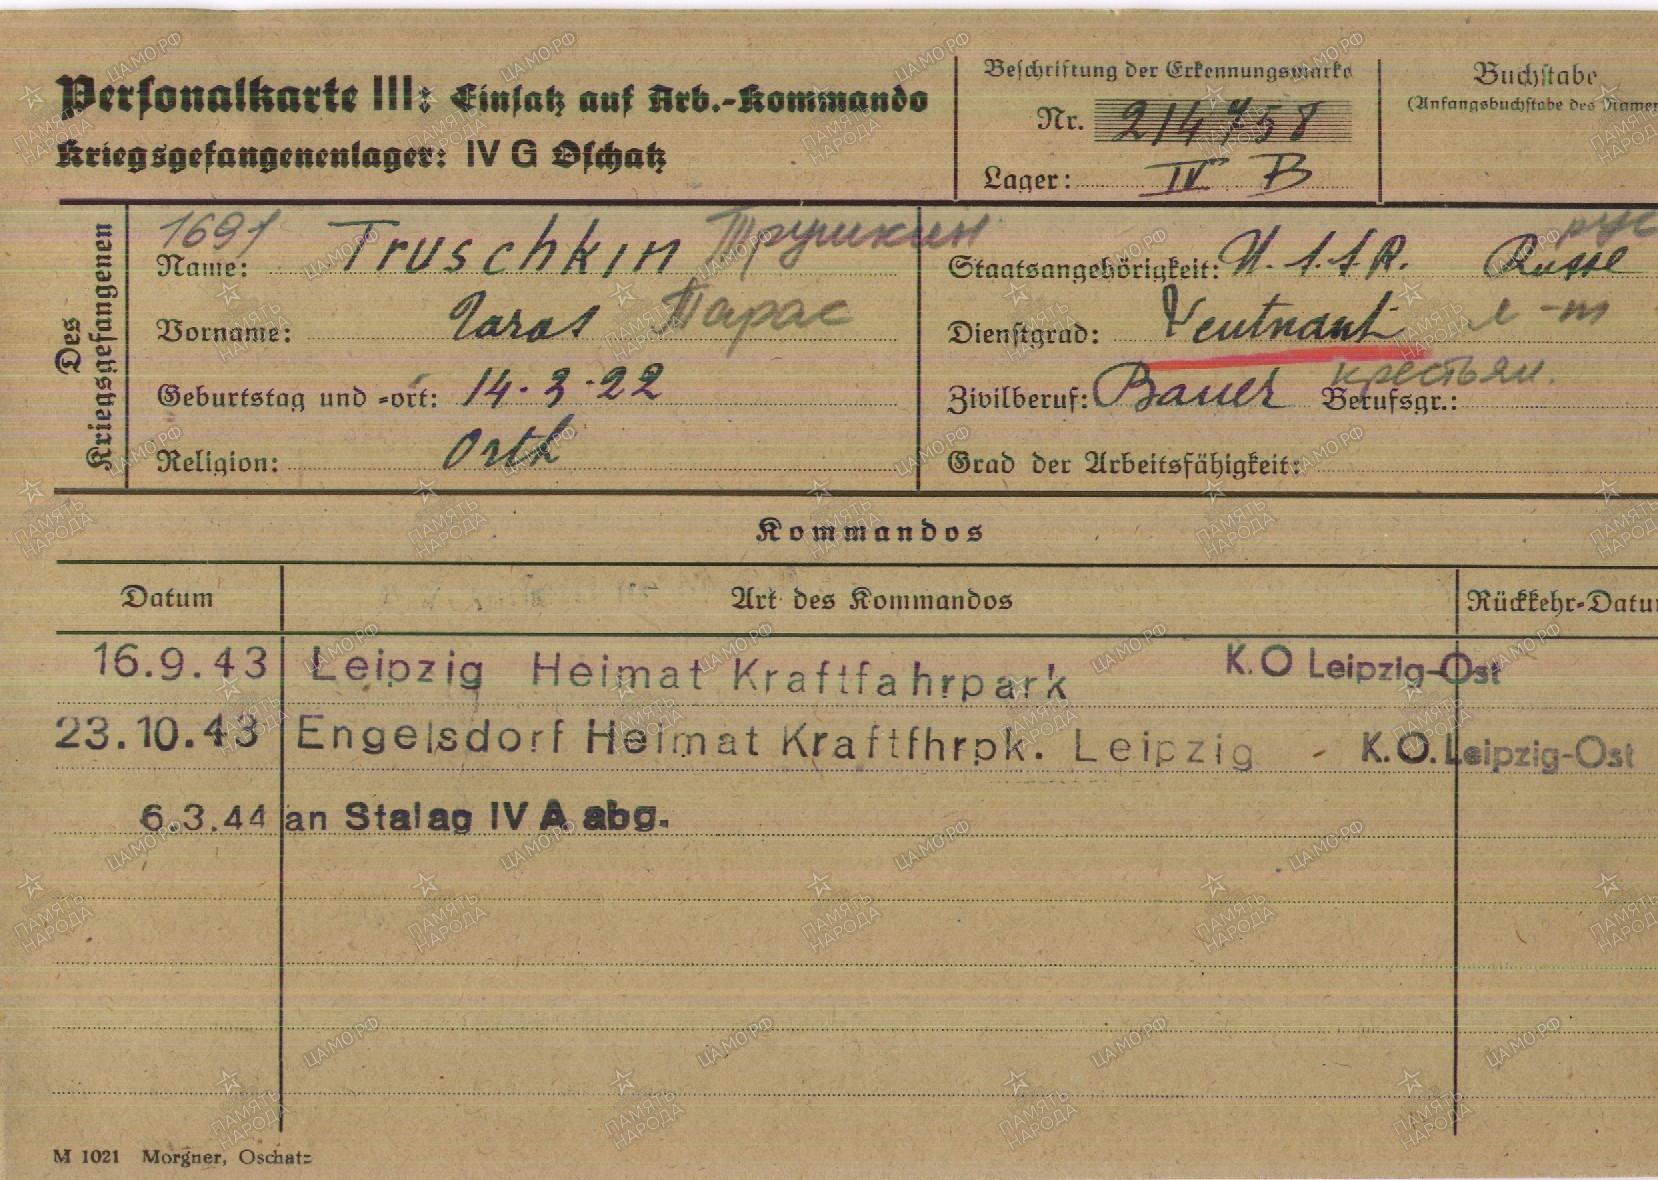 Personalkarte III: Einsatz auf Arb.-Kommando
Kriegsgefangenenlager: IV G Oschatz
Beschriftung der Erkennungsmarke
Nr. 214758
Lager: IV B
Buchstabe
(Anfangsbuchstabe des Namen
Des Kriegsgefangenen
1691
Name: Truschkin Трушкин
Vorname: Taras Тарас
Geburtstag und -ort: 14.3.22
Religion: Orth
Staatsangehörigkeit: U.S.S.R. Russe рус
Dienstgrad: Leutnant л-т
Zivilberuf: Bauer крестьян. Berufsgr.:
Grad der Arbeitsfähigkeit:
Kommandos
Datum Art des Kommandos Rückkehr-Datu
16.9.43 Leipzig Heimat Kraftfahrpark K.O Leipzig-Ost
23.10.43 Engelsdorf Heimat Kraftfhrpk. Leipzig - K.O. Leipzig-Ost
6.3.44 an Stalag IV A abg.
M 1021 Morgner, Oschatz
ПАМЯТЬ НАРОДА
ЦАМО.РФ